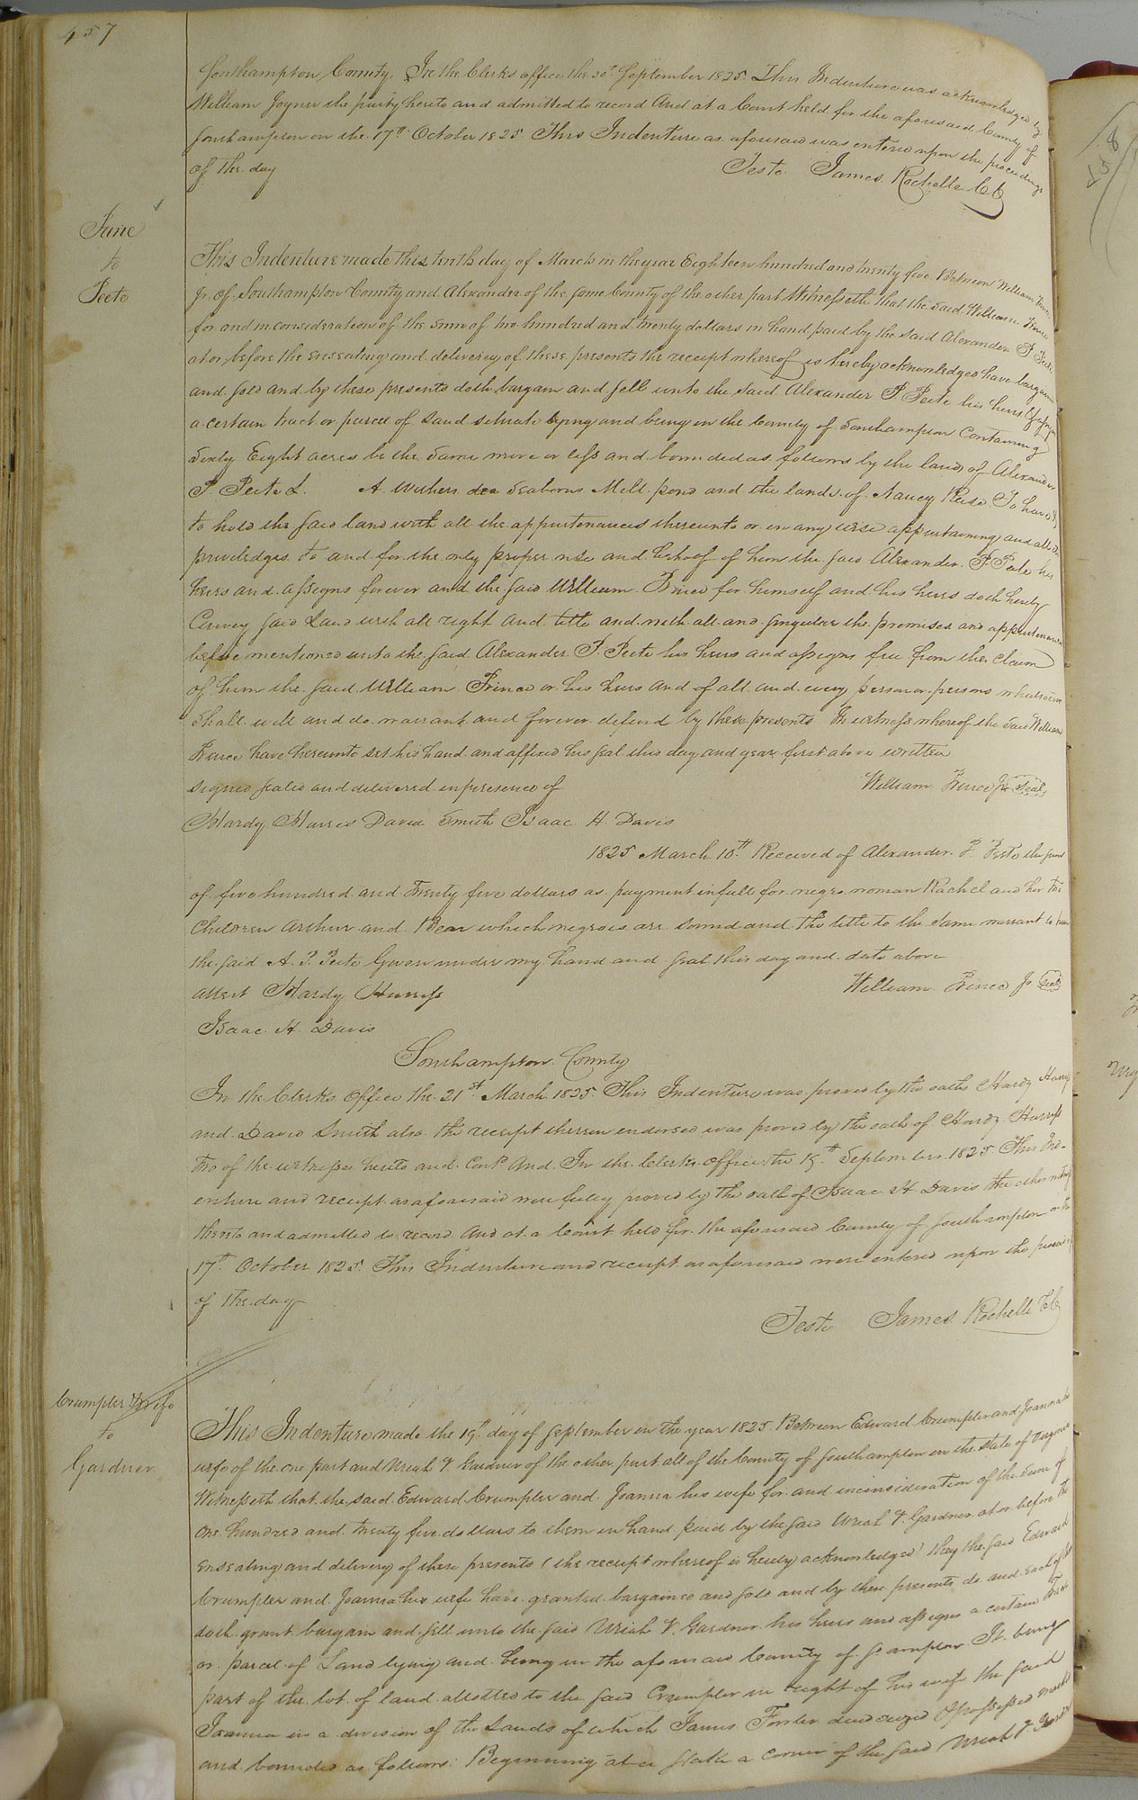 457
Southampton County. In the Clerks office the 20th September 1825. This Indenture was acknowledged by
William Joyner the party hereto and admitted to record And at a Court held for the aforesaid County of
Southampton on the 17th October 1825 This Indenture as aforesaid was entered upon the proceedings
of the day
Teste James Rochelle CC
458
to
Peete
This Indenture made this tenth day of March in the year Eighteen hundred and twenty five Between William
Jr. of Southampton County and Alexander of the same County of the other part Witnesseth that the said William
for and in consideration of the sum of two hundred and twenty dollars in hand paid by the said Alexander P Peete
at or before the ensealing and delivery of these presents the receipt whereof is hereby acknowledged have bargained
and sold and by these presents doth bargain and sell unto the said Alexander P Peete his heirs & assigns
a certain tract or parcel of Land situate lying and being in the County of Southampton Containing
Sixty Eight acres be the same more or less and bounded as follows by the lands of Alexander
P Peete L. A. Withers Seaborns Mill pond and the lands of Nancy To have &
to hold the said land with all the appurtenances thereunto or in any wise appertaining and all
priviledges to and for the only proper use and behoof of him the said Alexander P Peete his
heirs and assigns forever and the said William for himself and his heirs doth hereby
Convey said Land with all right and title and with all and singular the premises and appurtenances
before mentioned unto the said Alexander P. Peete his heirs and assigns free from the claim
of him the said William or his heirs and of all and every person or persons whatsoever
Shall will and do warrant and forever defend by these presents In witness whereof the said William
have hereunto set his hand and affixed his seal this day and year first above written
Signed sealed and delivered in presence of
William Jr Seal
Hardy Harris David Smith Isaac H. Davis
1825 March 10th Received of Alexander P Peete the sum
of five hundred and twenty five dollars as payment in full for negro woman Rachel and her two
Children Arthur and which negroes are sound and the title to the same warrant to
the said A. P. Peete Given under my hand and seal this day and date above
Attest Hardy Harriss
William Jr. Seal
Isaac H. Davis
Southampton County
In the Clerks Office the 21st March 1825 This Indenture was proved by the oaths Hardy
and David Smith also the receipt thereon endorsed was proved by the oath of Hardy Harriss
two of the witnesses hereto and And In the Clerks office the 19th September 1825 This Ind-
enture and receipt as aforesaid were fully proved by the oath of Isaac H Davis the other witness
thereto and admitted to record And at a Court held for the aforesaid County of Southampton on the
17th October 1825 This Indenture and receipt as aforesaid were entered upon the
of the day
Teste James Rochelle CC
Crumpler & Wife
to
Gardner
This Indenture made the 19th day of September in the year 1825 Between Edward Crumpler and Joanna his
wife of the one part and Uriah V Gardner of the other part all of the County of Southampton in the State of Virginia
Witnesseth that the said Edward Crumpler and Joanna his wife for and in consideration of the sum of
one hundred and twenty five dollars to them in hand paid by the said Uriah V. Gardner at or before the
ensealing and delivery of these presents (the receipt whereof is hereby acknowledged) they the said Edward
Crumpler and Joanna his wife have granted bargained and sold and by these presents do and each of
doth grant bargain and sell unto the said Uriah V. Gardner his heirs and assigns a certain
or parcel of Land lying and being in the aforesaid County of It being
part of the lot of land allotted to the said Crumpler in right of his wife the said
Joanna in a division of the Lands of which James deceased
and bounded as follows: Beginning at a stake a corner of the said Uriah V